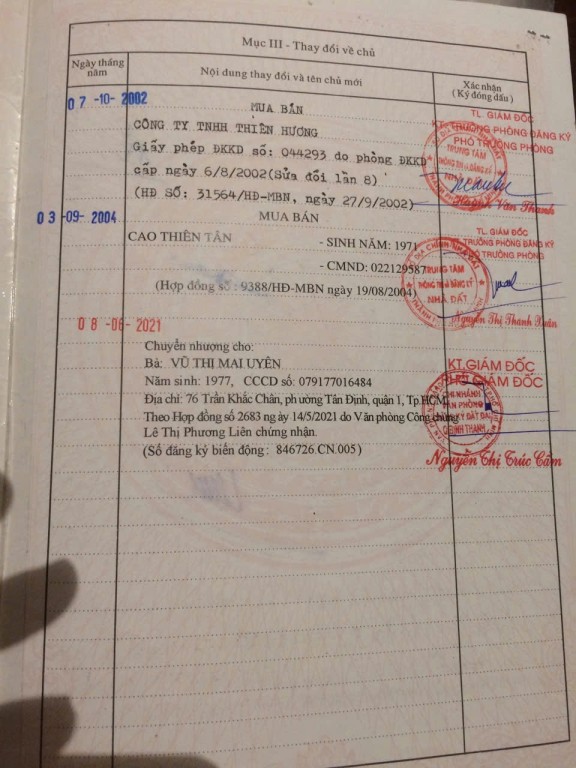 Mục III - Thay đổi về chủ
Ngày tháng năm
Nội dung thay đổi và tên chủ mới
Xác nhận
(Ký đóng dấu)
07 -10- 2002
MUA BÁN
CÔNG TY TNHH THIÊN HƯƠNG
Giấy phép ĐKKD số: 044293 do phòng ĐKKD
cấp ngày 6/8/2002(Sửa đổi lần 8)
(HĐ SỐ: 31564/HĐ-MBN, ngày 27/9/2002)
TL. GIÁM ĐỐC
KT. TRƯỞNG PHÒNG ĐĂNG KÝ
PHÓ TRƯỞNG PHÒNG
TRUNG TÂM
THÔNG TIN VÀ ĐĂNG KÝ
NHÀ ĐẤT
Huỳnh Văn Thanh
03 -09- 2004
MUA BÁN
CAO THIÊN TÂN
- SINH NĂM: 1971
- CMND: 022129587
(Hợp đồng số : 9388/HĐ-MBN ngày 19/08/2004)
TL. GIÁM ĐỐC
TRƯỞNG PHÒNG ĐĂNG KÝ
PHÓ TRƯỞNG PHÒNG
TRUNG TÂM
THÔNG TIN VÀ ĐĂNG KÝ
NHÀ ĐẤT
Nguyễn Thị Thanh Xuân
08 -06- 2021
Chuyển nhượng cho:
Bà: VŨ THỊ MAI UYÊN
Năm sinh: 1977, CCCD số: 079177016484
Địa chỉ: 76 Trần Khắc Chân, phường Tân Định, quận 1, Tp HCM
Theo Hợp đồng số 2683 ngày 14/5/2021 do Văn phòng Công chứng
Lê Thị Phương Liên chứng nhận.
(Số đăng ký biến động: 846726.CN.005)
KT.GIÁM ĐỐC
GIÁM ĐỐC
CHI NHÁNH
VĂN PHÒNG
ĐẤT ĐAI
Nguyễn Thị Trúc Cầm